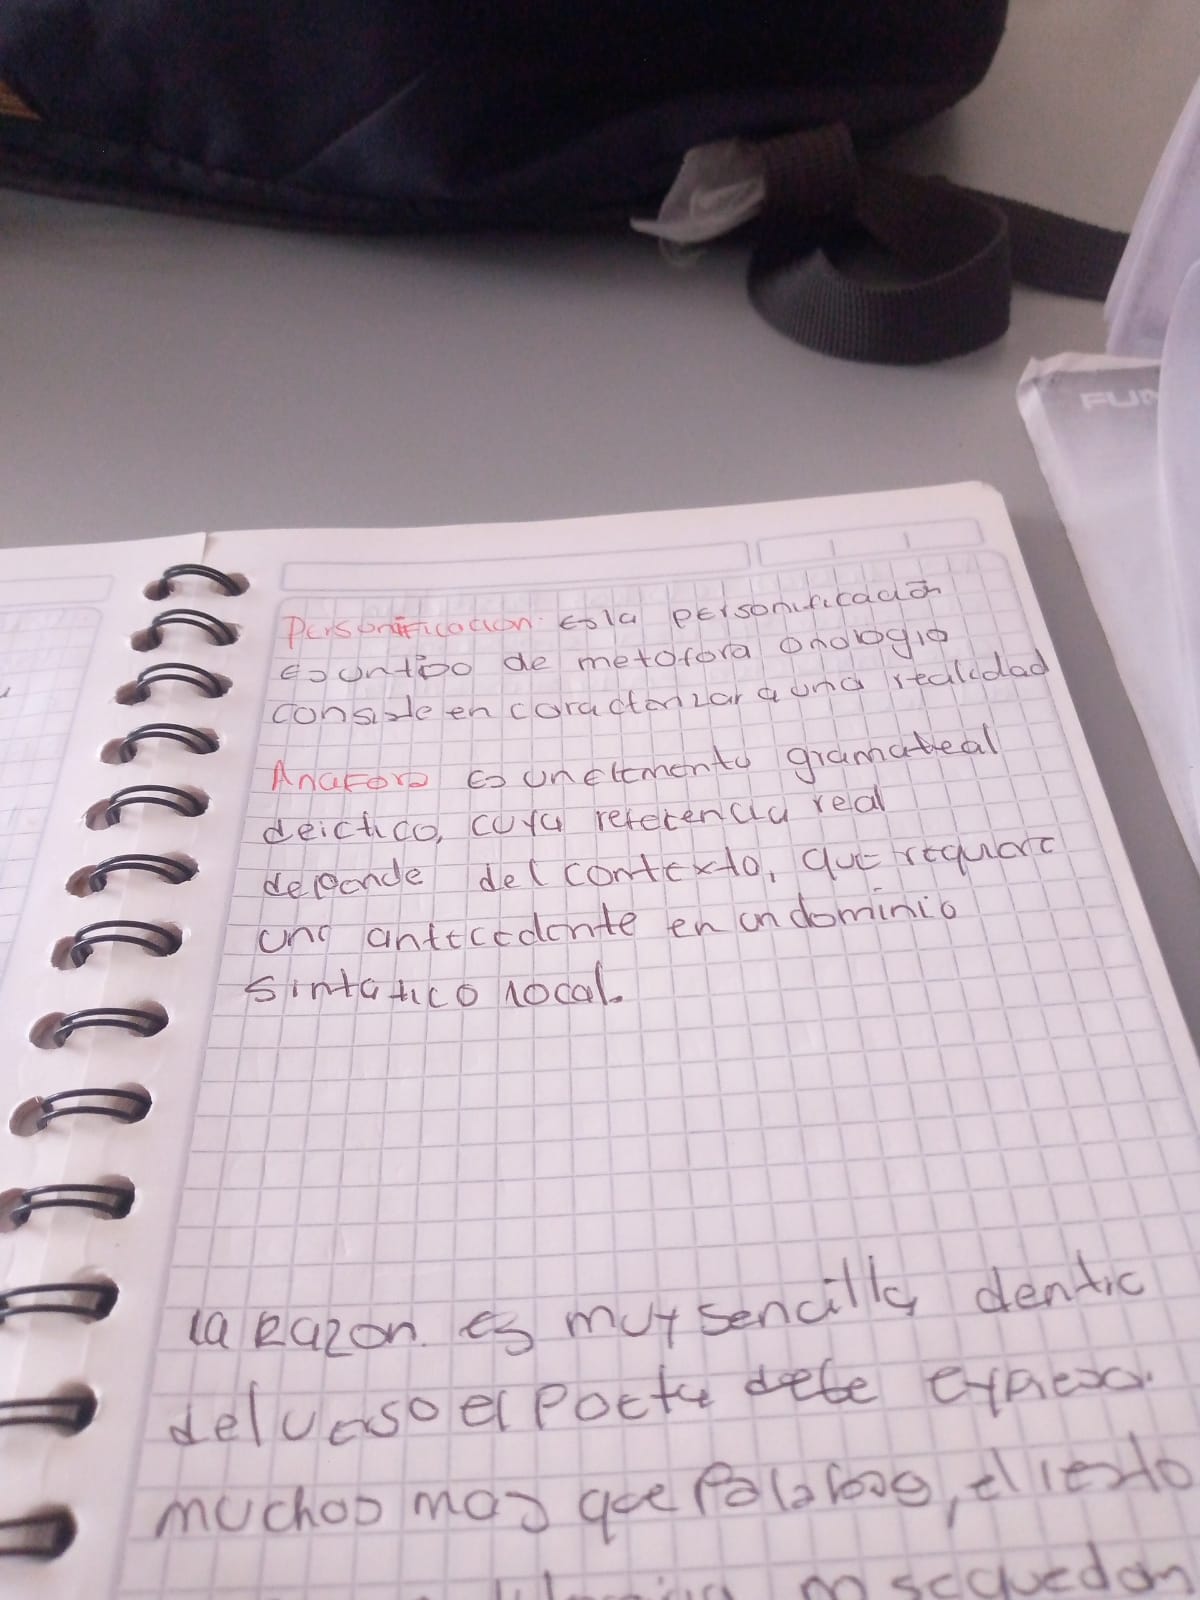 Personificacion: es la personificación
es un tipo de metofora onologio
consiste en caractenizar a una realidad
Anafora es un elemento gramateal
deictico, cuya referencia real
depende del contexto, que requiere
uno antecedente en un dominio
sintatico local.
la Razon. es muy sencilla, dentic
del verso el Poeta debe expresa.
muchos mas que Palabras, el resto
no se quedan
FUN